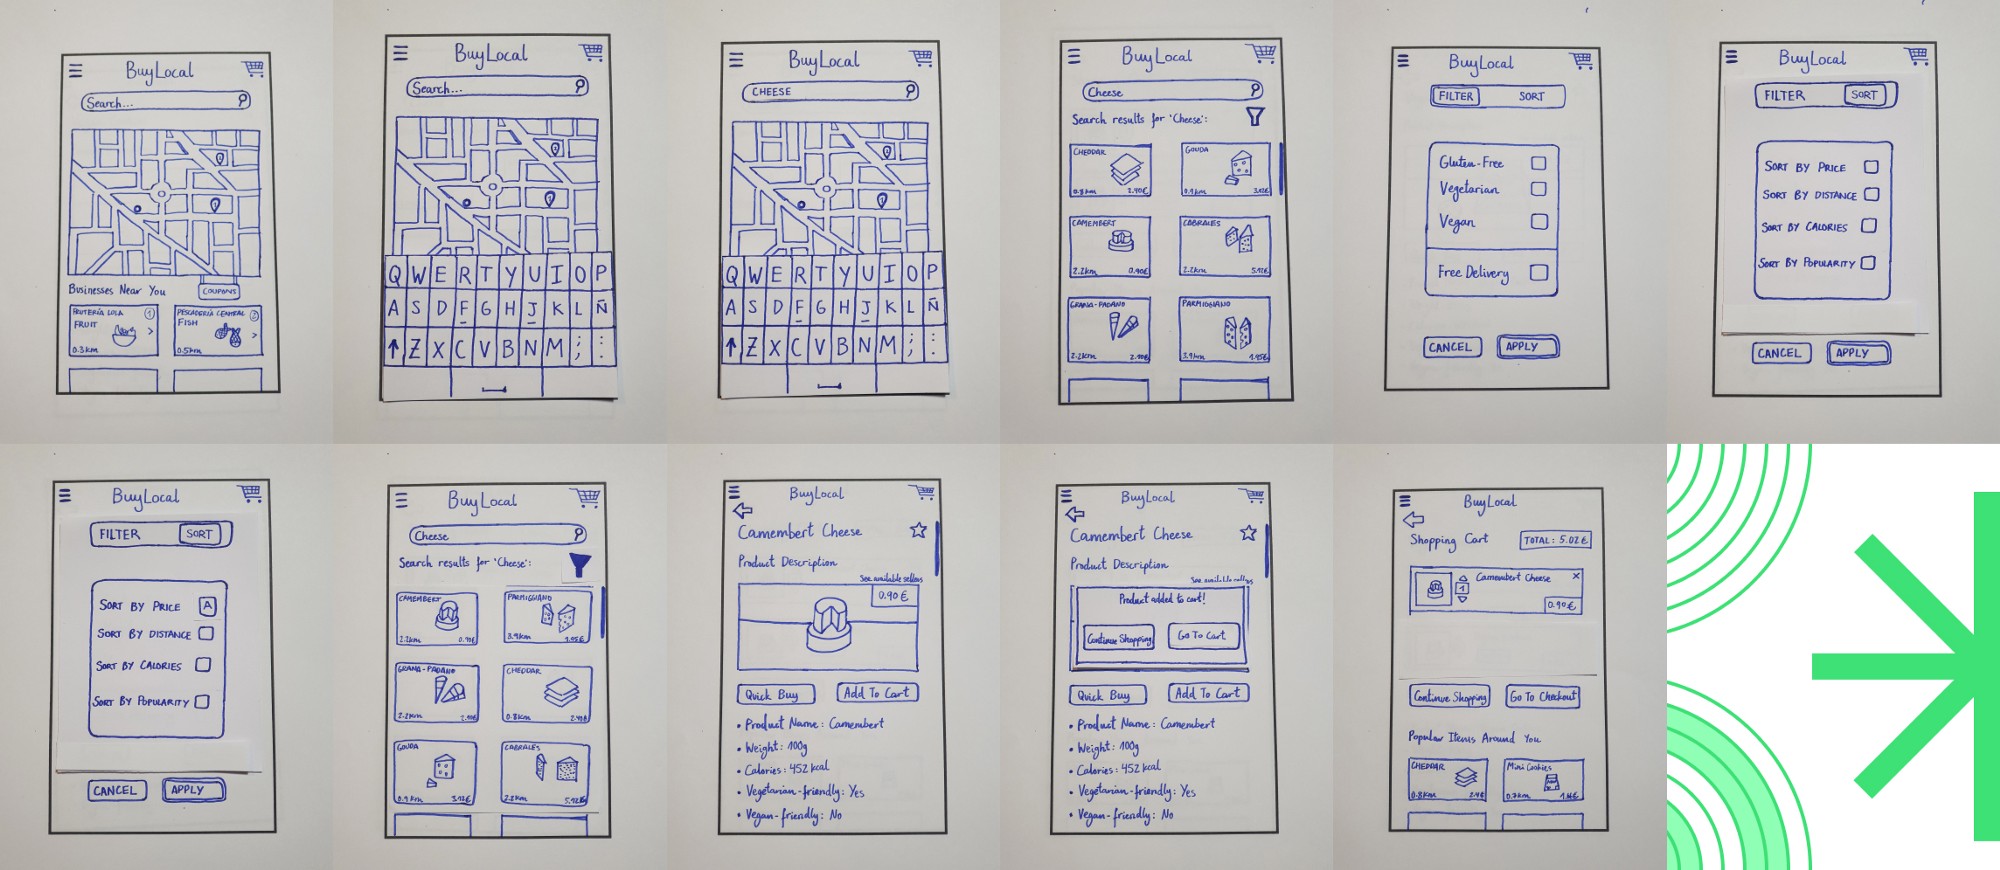 BuyLocal
Search...
Businesses Near You
COUPONS
FRUTERÍA LOLA 1
FRUIT
>
0.3km
PESCADERÍA CENTRAL 2
FISH
>
0.5km
BuyLocal
Search...
Q W E R T Y U I O P
A S D F G H J K L Ñ
Z X C V B N M ; :
BuyLocal
CHEESE
Q W E R T Y U I O P
A S D F G H J K L Ñ
Z X C V B N M ; :
BuyLocal
Cheese
Search results for 'Cheese':
CHEDDAR
0.8km 2.40€
GOUDA
0.9km 3.12€
CAMEMBERT
2.2km 0.90€
CABRALES
2.2km 5.12€
GRANA-PADANO
2.2km 2.10€
PARMIGIANO
3.9km 1.95€
BuyLocal
FILTER SORT
Gluten-Free
Vegetarian
Vegan
Free Delivery
CANCEL APPLY
BuyLocal
FILTER SORT
SORT BY PRICE
SORT BY DISTANCE
SORT BY CALORIES
SORT BY POPULARITY
CANCEL APPLY
BuyLocal
FILTER SORT
SORT BY PRICE A
SORT BY DISTANCE
SORT BY CALORIES
SORT BY POPULARITY
CANCEL APPLY
BuyLocal
Cheese
Search results for 'Cheese':
CAMEMBERT
2.2km 0.90€
PARMIGIANO
3.9km 1.95€
GRANA-PADANO
2.2km 2.10€
CHEDDAR
0.8km 2.40€
GOUDA
0.9km 3.12€
CABRALES
2.2km 5.12€
BuyLocal
Camembert Cheese
Product Description
See available sellers
0.90€
Quick Buy Add To Cart
• Product Name: Camembert
• Weight: 100g
• Calories: 452 kcal
• Vegetarian-friendly: Yes
• Vegan-friendly: No
BuyLocal
Camembert Cheese
Product Description
See available sellers
Product added to cart!
Continue Shopping Go To Cart
Quick Buy Add To Cart
• Product Name: Camembert
• Weight: 100g
• Calories: 452 kcal
• Vegetarian-friendly: Yes
• Vegan-friendly: No
BuyLocal
Shopping Cart TOTAL: 5.02€
1 Camembert Cheese ×
0.90€
Continue Shopping Go To Checkout
Popular Items Around You
CHEDDAR
0.8km 2.40€
Mini Cookies
0.7km